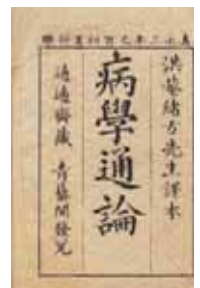 洪菴緒方先生譯本
病學通論
適適齋藏 青藜閣發兌